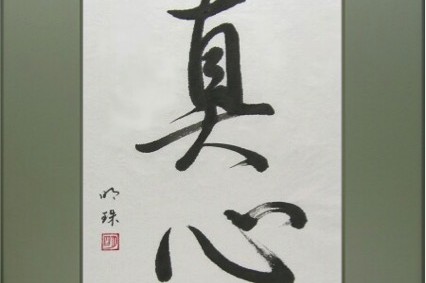 真心
明珠